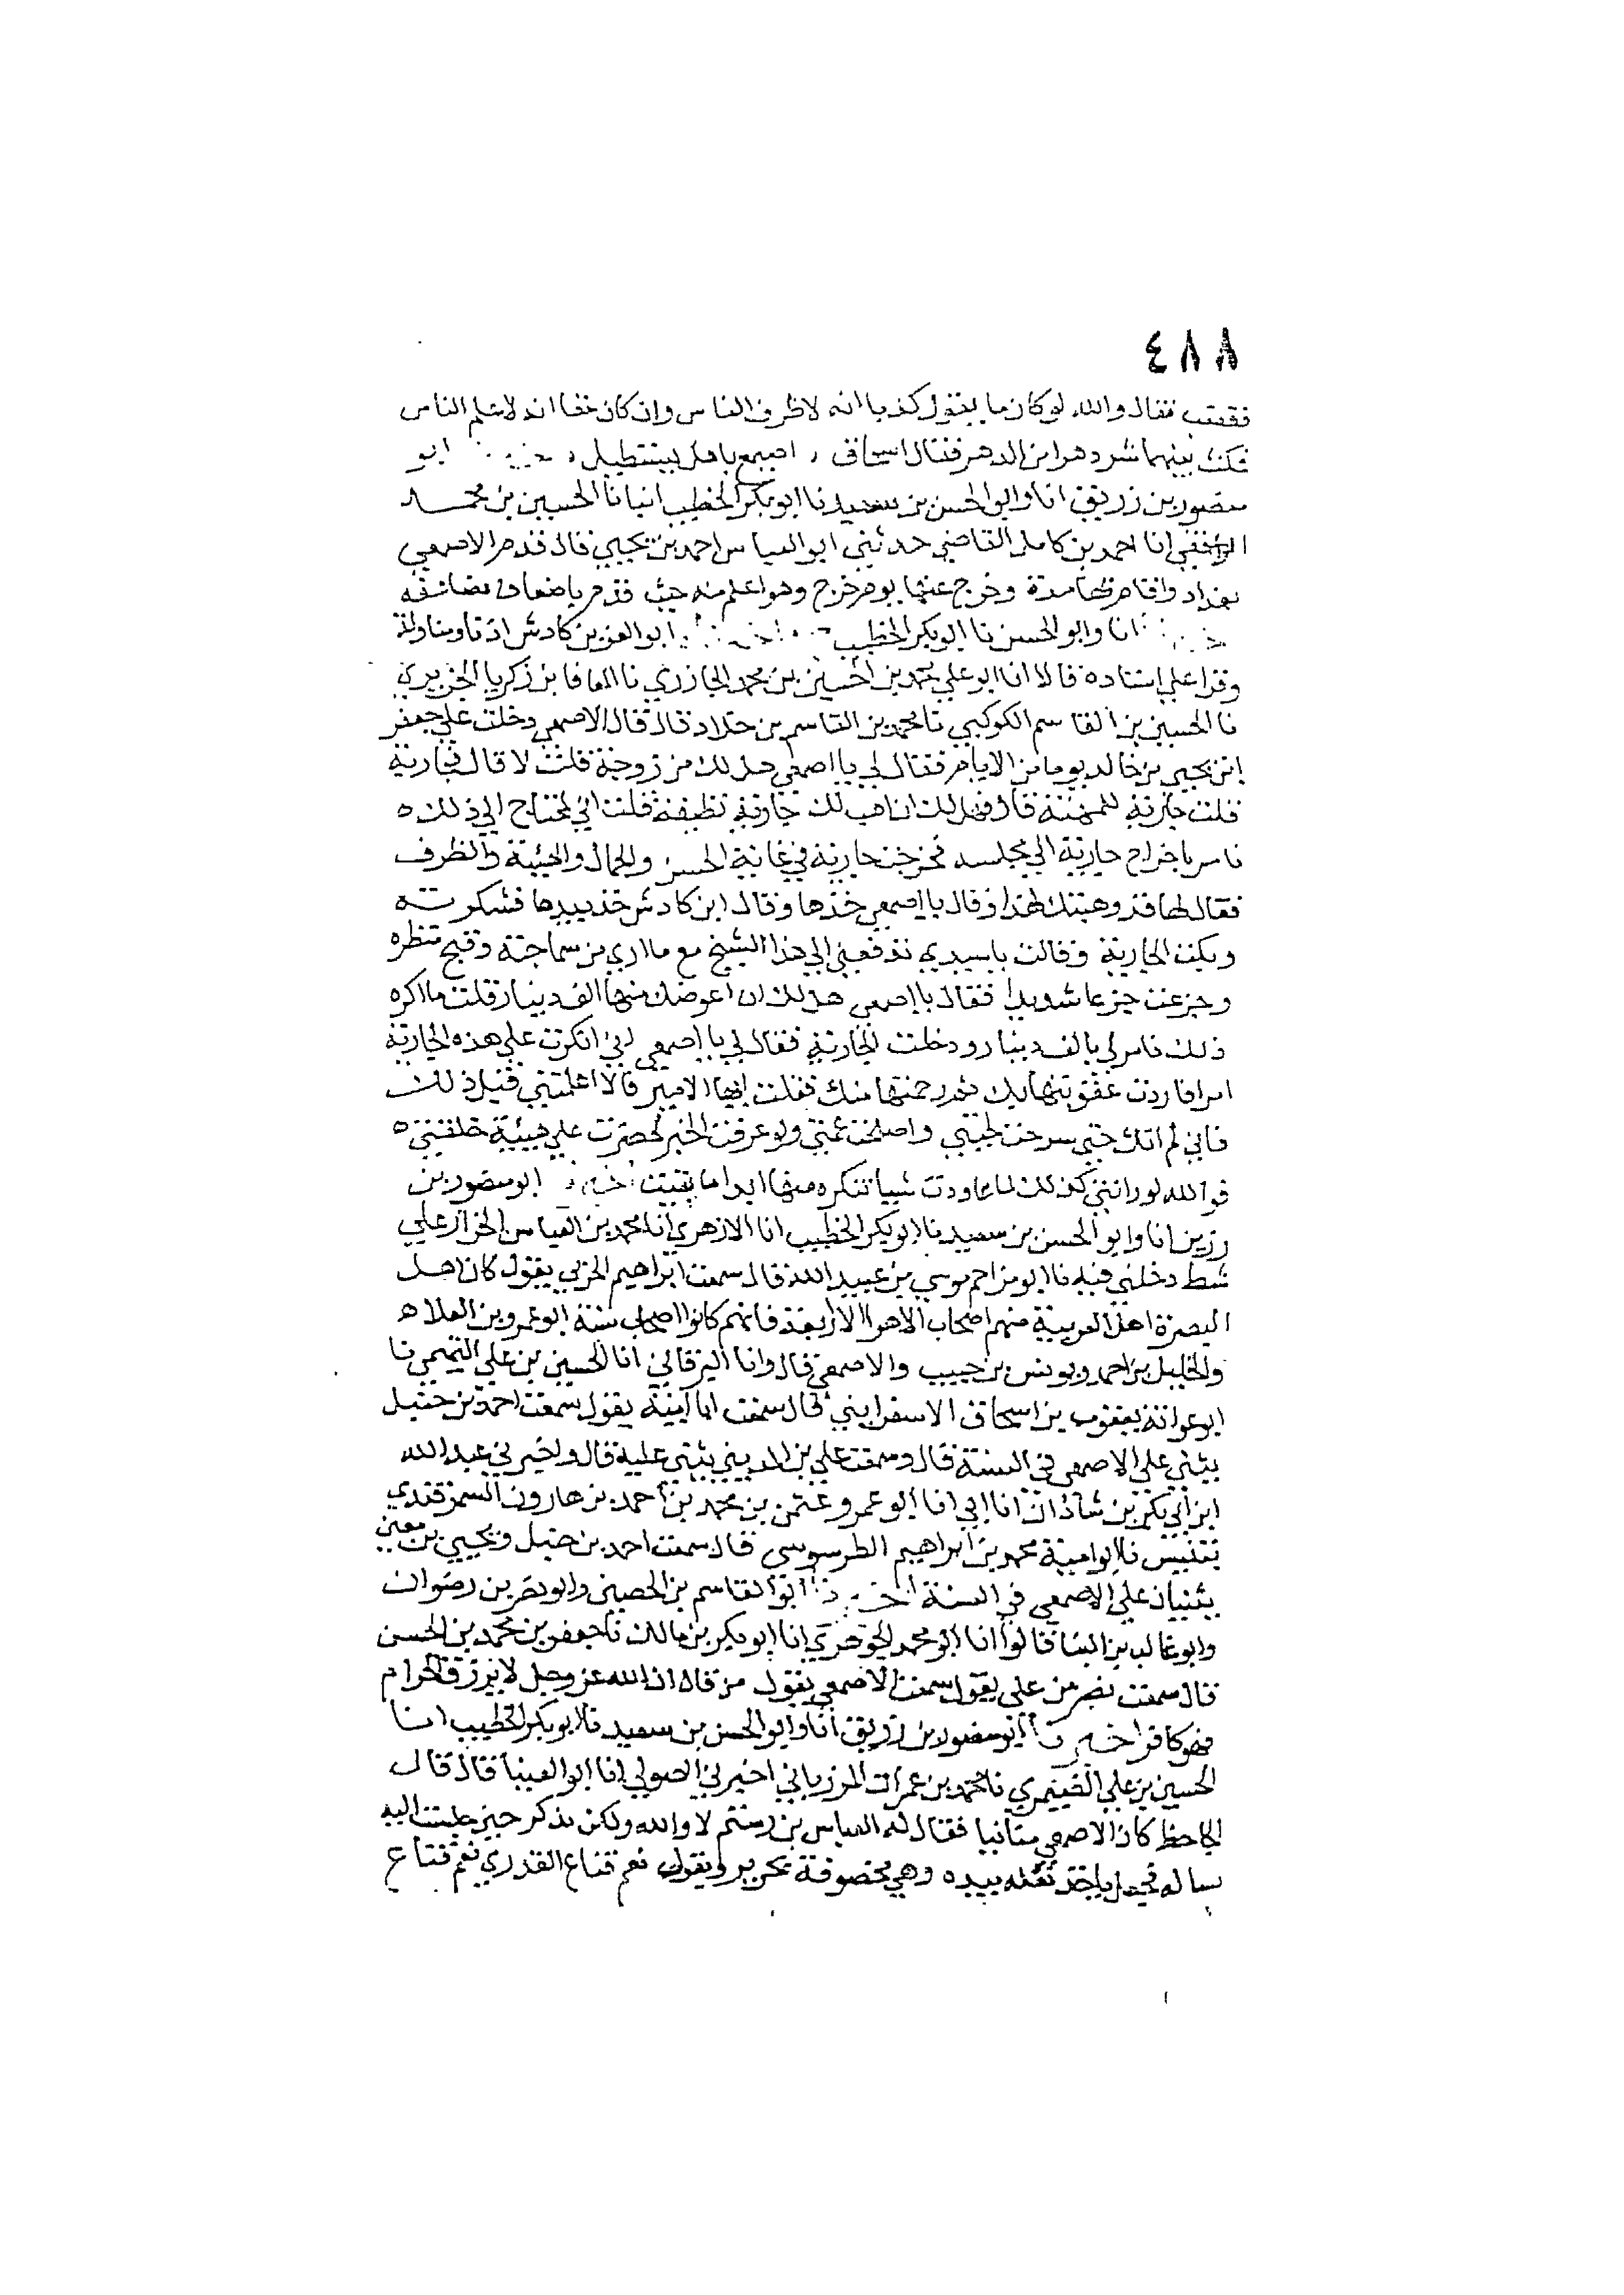 ٤٨٨
فقعنب فقال والله لو كان ما يقول كذبا انه لاظرف الناس وان كان حقا انه لاعلم الناس
فمكث بينهما شر دهرا من الدهر فقال اسحاق
منصور بن زريق انا وابو الحسن بن سعيد نا ابو بكر الخطيب انبانا الحسين بن محمد
انا احمد بن كامل القاضي حدثني ابو العباس احمد بن يحيي قال قدم الاصمعي
بغداد واقام بها مدة وخرج عنها يوم خرج وهو اعلم منه حيث قدم باضعاف مضاعفه
انا وابو الحسن نا ابو بكر الخطيب ابو العز بن كادش اذنا ومناولة
وقرا علي اسناده قالا انا ابو علي محمد بن الحسين بن محمد الجازري نا المعافا بن زكريا الجريري
نا الحسين بن القاسم الكوكبي نا محمد بن القاسم بن خلاد قال قال الاصمعي دخلت علي جعفر
ابن يحيي بن خالد يوما من الايام فقال لي يا اصمعي هل لك من زوجة قلت لا قال فجارية
قلت جارية للمهنة قال فهل لك ان اهب لك جارية نظيفة قلت اني لمحتاج الي ذلك ه
فامر باخراج جارية الي مجلسه فخرجت جارية في غاية الحسن والجمال والهيئة والظرف
فقال لها قد وهبتك لهذا وقال يا اصمعي خذها وقال ابن كادش خذ بيدها فشكرته
وبكت الجارية وقالت يا سيدي تدفعني الي هذا الشيخ مع ما اري من سماجته وقبح منظره
وجزعت جزعا شديدا فقال يا اصمعي هل لك ان اعوضك منها الف دينار قلت ما اكره
ذلك فامر لي بالف دينار ودخلت الجارية فقال لي يا اصمعي اني انكرت علي هذه الجارية
امرا فاردت عقوبتها بك ثم رحمتها منك فقلت ايها الامير فالا اعلمتني قبل ذلك
فاني لم اتك حتي سرحت لحيتي واصلحت عمتي ولو عرفت الخبر لحضرت علي هيئة خلقتي ه
فوالله لو راتني كذلك لما عاودت شيا تنكره منها ابدا ما بقيت ابو منصور بن
رزين انا وابو الحسن بن سعيد نا ابو بكر الخطيب انا الازهري انا محمد بن العباس الخزاز علي
شط دخلني فيه نا ابو مزاحم موسي بن عبيد الله قال سمعت ابراهيم الحربي يقول كان اهل
البصرة اهل العربية منهم اصحاب الاهوا الا اربعة فانهم كانوا اصحاب سنة ابو عمرو بن العلا ه
والخليل بن احمد ويونس بن حبيب والاصمعي قال وانا البرقاني انا الحسين بن علي التميمي نا
ابو عوانة يعقوب بن اسحاق الاسفرايني قال سمعت ابا امية يقول سمعت احمد بن حنبل
يثني علي الاصمعي في السنة قال وسمعت علي بن المديني يثني عليه قال واخبرني عبد الله
ابن ابي بكر بن شاذان انا ابي انا ابو عمرو عثمن بن محمد بن احمد بن هارون السمرقندي
بتنيس نا ابو امية محمد بن ابراهيم الطرسوسي قال سمعت احمد بن حنبل ويحيي بن معين
يثنيان علي الاصمعي في السنة اخبرنا ابو القاسم بن الحصين وابو نصر بن رضوان
وابو غالب بن البنا قالوا انا ابو محمد الجوهري انا ابو بكر بن مالك نا جعفر بن محمد بن الحسن
قال سمعت نصر بن علي يقول سمعت الاصمعي يقول من قال ان الله عز وجل لا يرزق الحرام
فهو كافر اخبرنا ابو منصور بن زريق انا وابو الحسن بن سعيد نا ابو بكر الخطيب انا
الحسين بن علي الصيمري نا محمد بن عمران المرزباني اخبرني الصولي انا ابو العينا قال قال
الجاحظ كان الاصمعي منانيا فقال له العباس بن رستم لا والله ولكن نذكر حين جلست اليه
تساله فجعل ياخذ نعله بيده وهي مخصوفة بحرير ويقول نعم قناع القدري نعم قناع